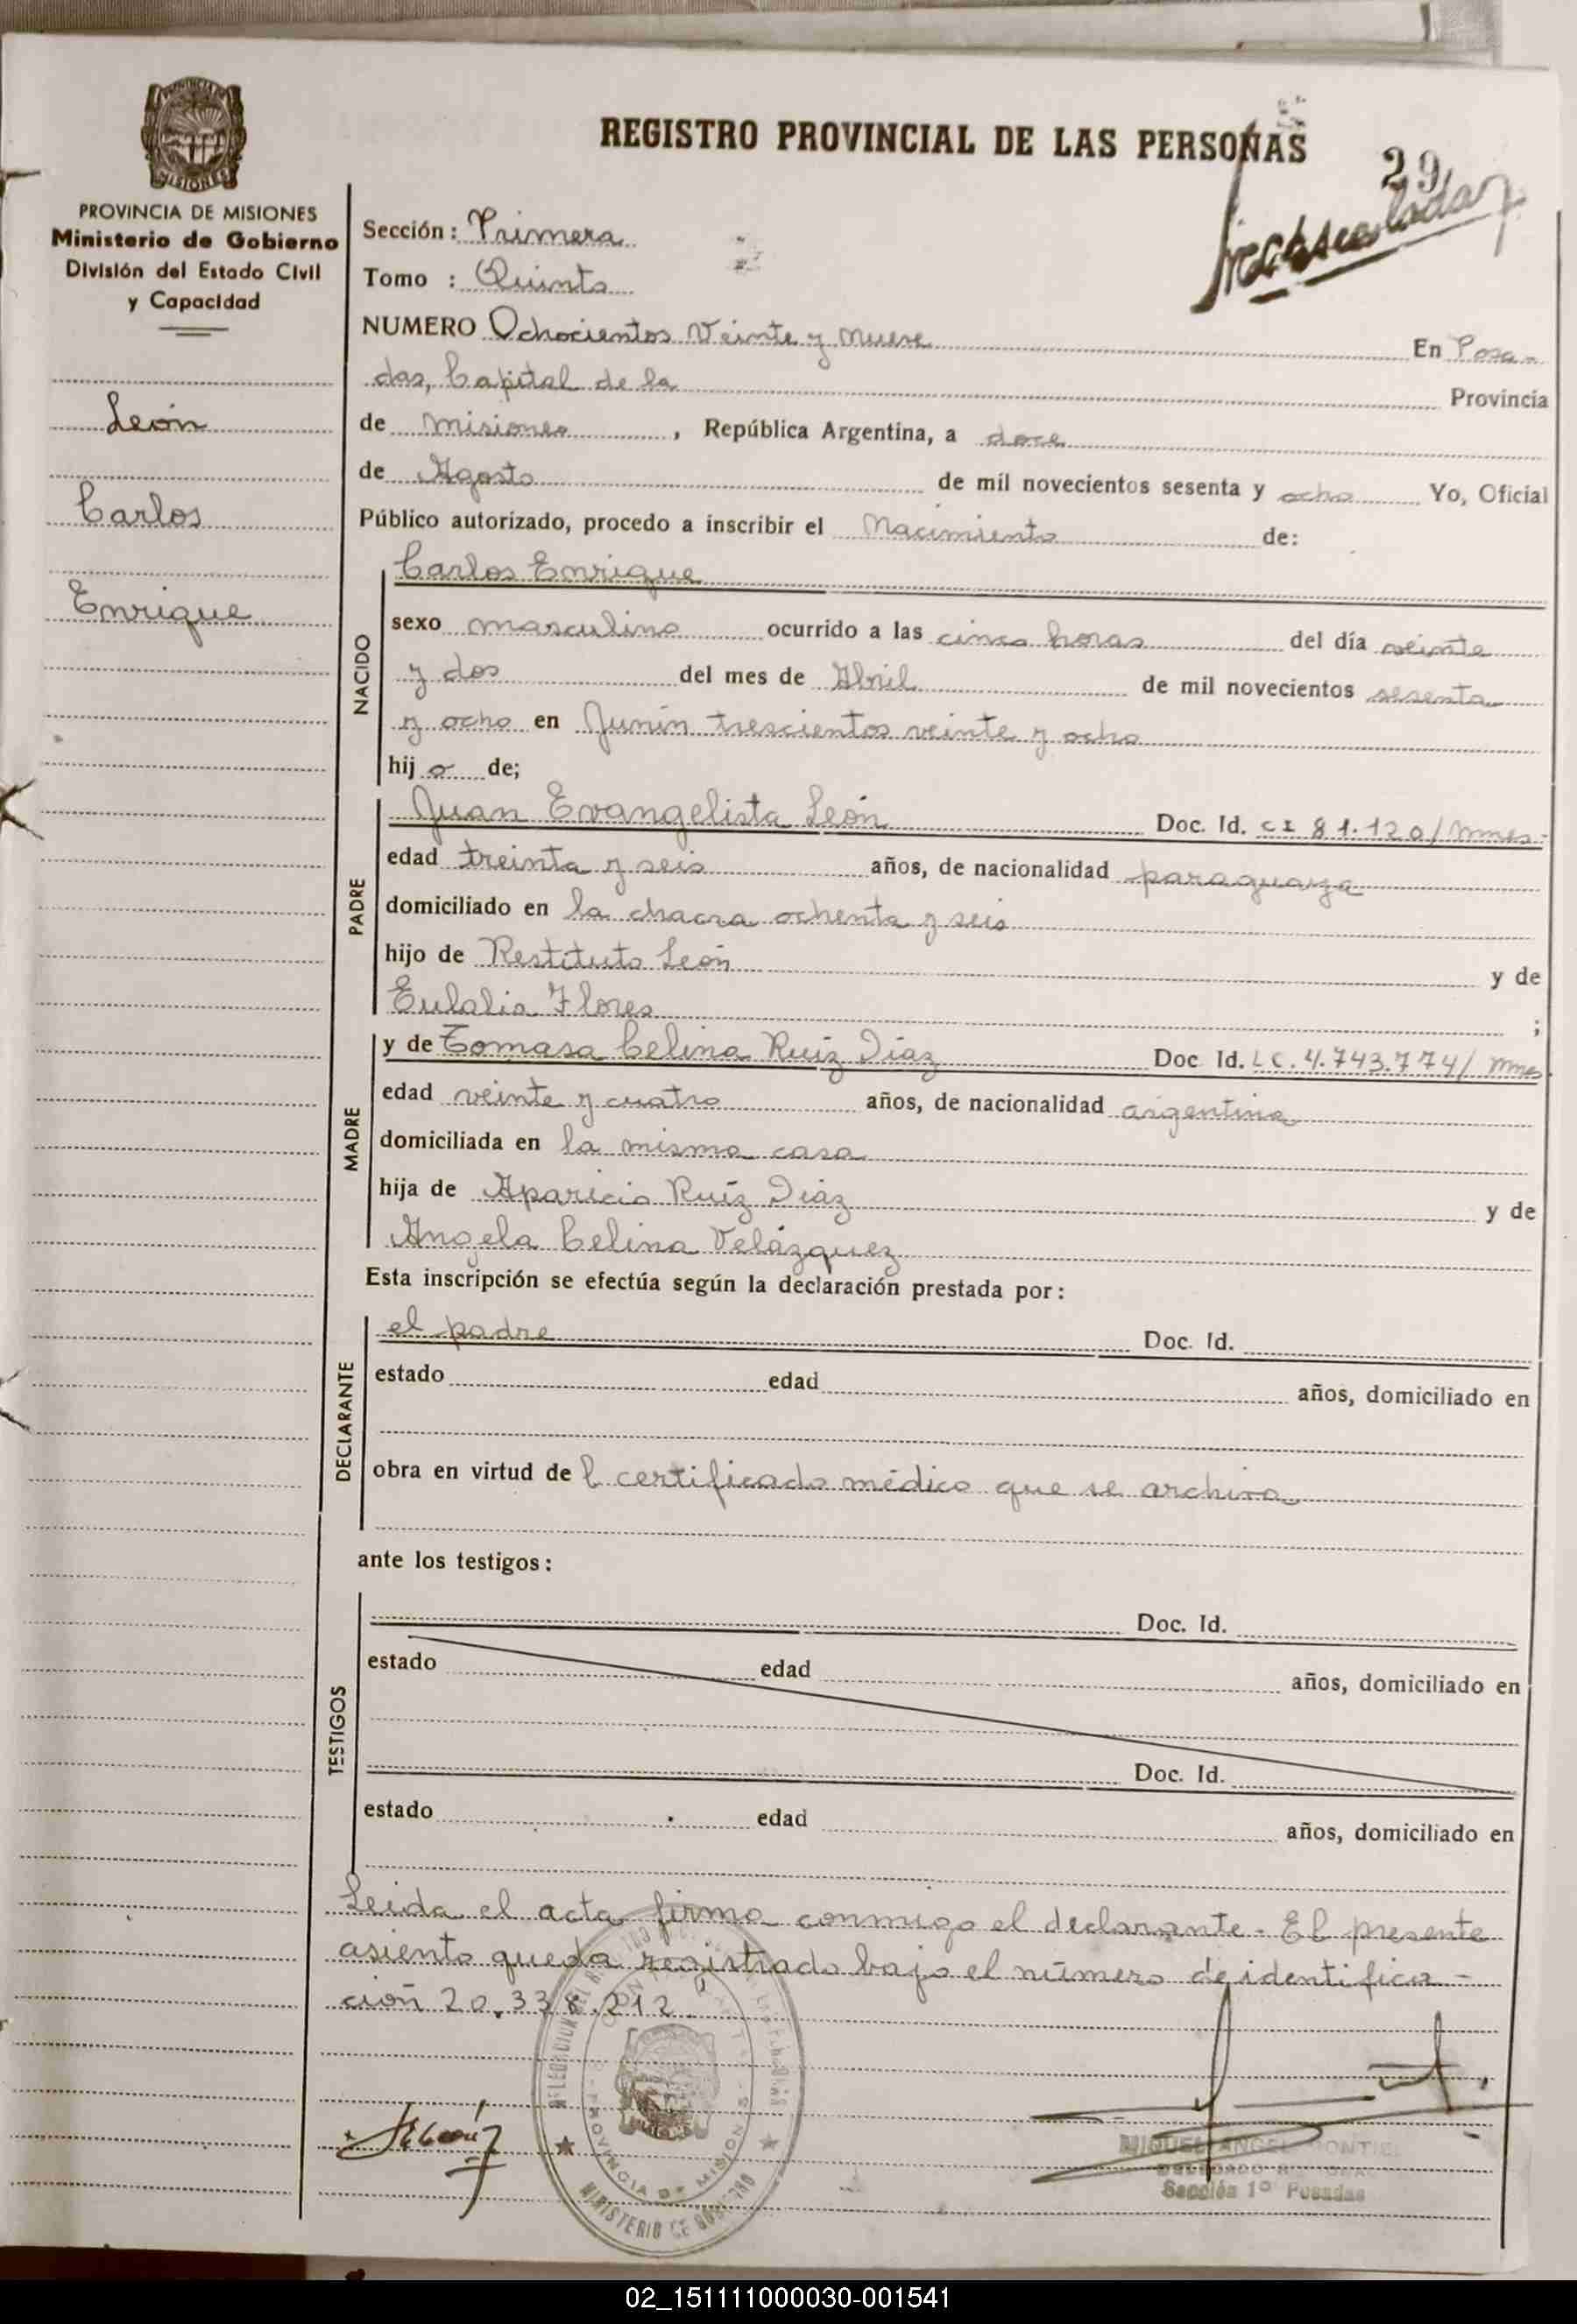 REGISTRO PROVINCIAL DE LAS PERSONAS
29
MISIONES
PROVINCIA DE MISIONES
Ministerio de Gobierno
División del Estado Civil
y Capacidad
León
Carlos
Enrique
Sección: Primera
Tomo : Quinto
NUMERO Ochocientos Veinte y Nueve En Posa-
das, Capital de la Provincia
de Misiones, República Argentina, a doce
de Agosto de mil novecientos sesenta y ocho Yo, Oficial
Público autorizado, procedo a inscribir el Nacimiento de:
NACIDO
Carlos Enrique
sexo masculino ocurrido a las cinco horas del día veinte
y dos del mes de Abril de mil novecientos sesenta
y ocho en Junín trescientos veinte y ocho
hijo de;
PADRE
Juan Evangelista León Doc. Id. CI 81.120/Mnes-
edad treinta y seis años, de nacionalidad paraguaya
domiciliado en la chacra ochenta y seis
hijo de Restituto León y de
Eulalia Flores ;
MADRE
y de Tomasa Celina Ruíz Díaz Doc Id. LC. 4.743.774/ Mnes.
edad veinte y cuatro años, de nacionalidad argentina
domiciliada en la misma casa
hija de Aparicio Ruíz Díaz y de
Angela Celina Velázquez
Esta inscripción se efectúa según la declaración prestada por:
DECLARANTE
el padre Doc. Id.
estado edad años, domiciliado en
obra en virtud del certificado médico que se archiva
ante los testigos:
TESTIGOS
Doc. Id.
estado edad años, domiciliado en
Doc. Id.
estado edad años, domiciliado en
Leida el acta firma conmigo el declarante - El presente
asiento queda registrado bajo el número de identifica-
ción 20.338.212.
PROVINCIA DE MISIONES
MINISTERIO DE GOBIERNO
MIGUEL ANGEL
Sección 1º Posadas
02_151111000030-001541